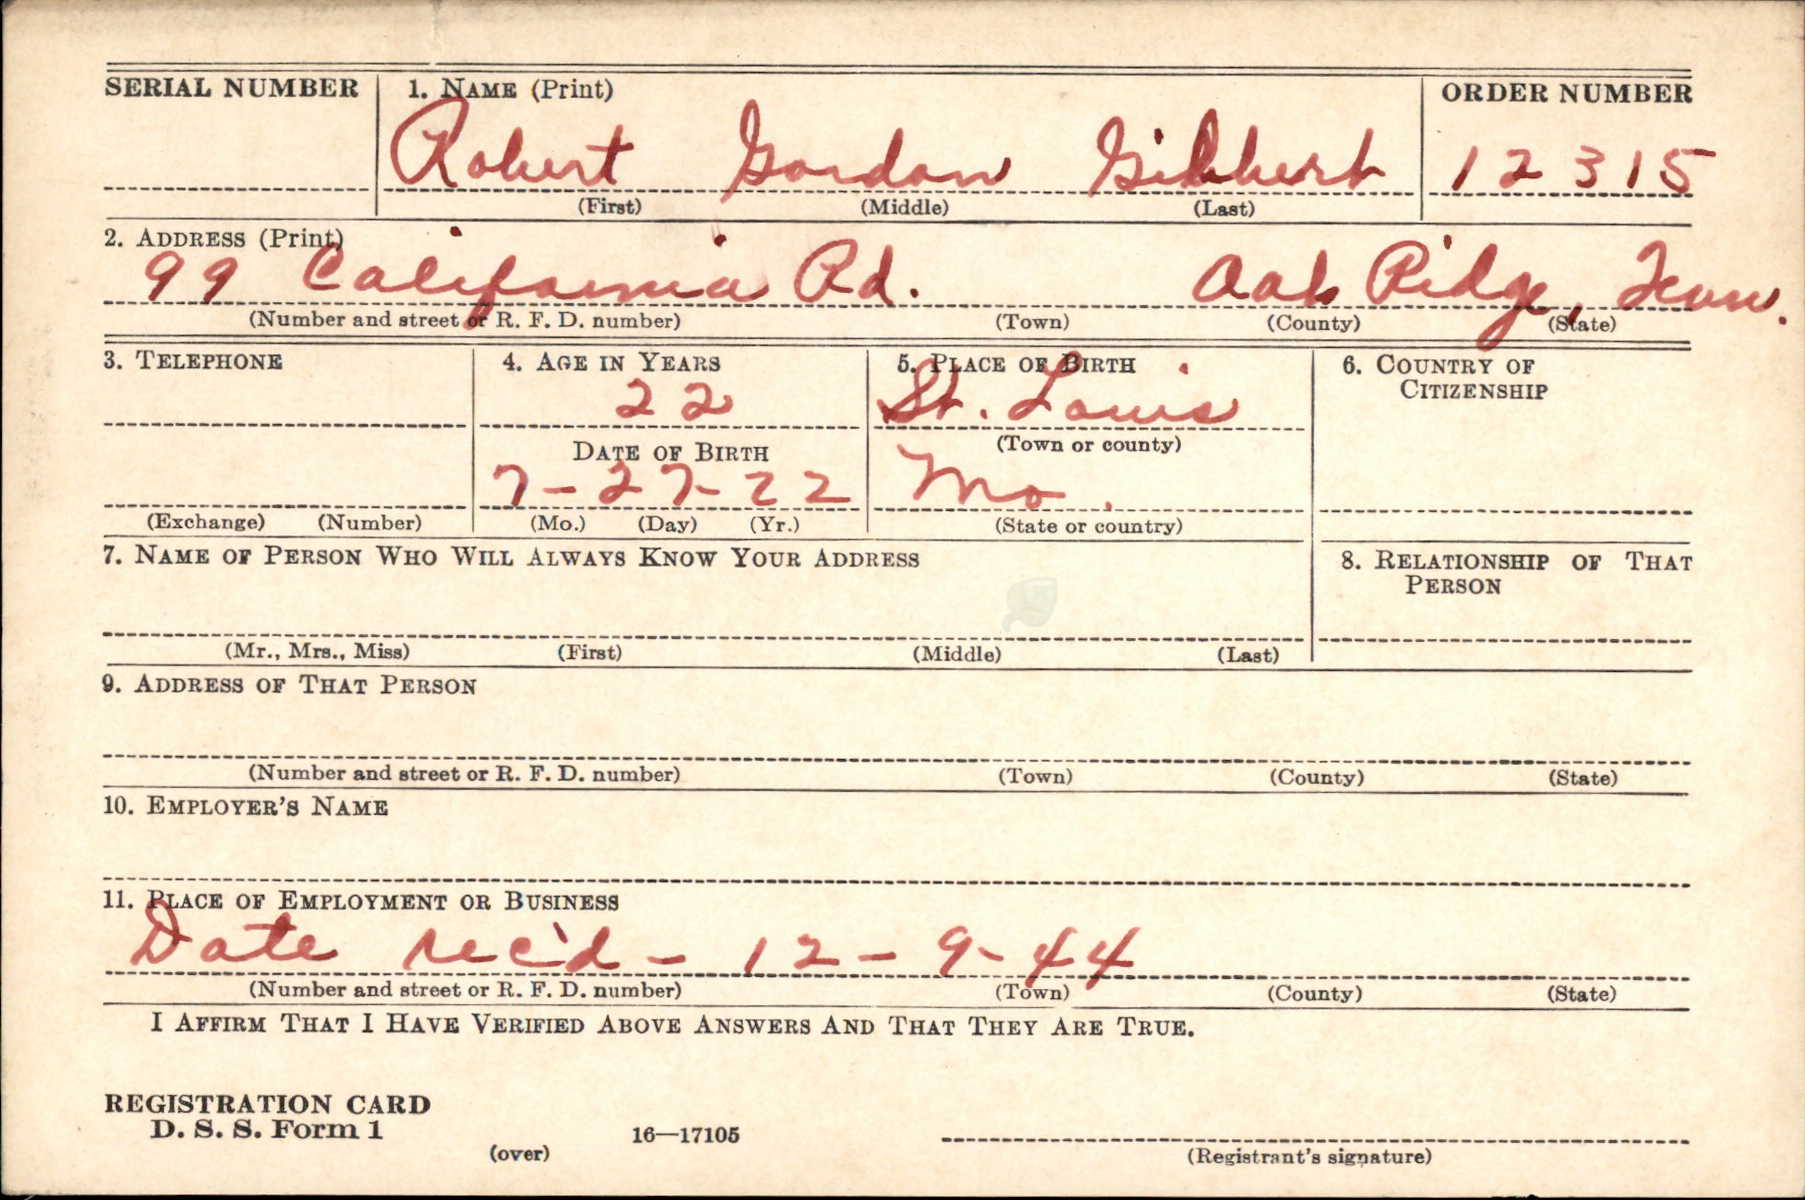 SERIAL NUMBER 1. NAME (Print) ORDER NUMBER
Robert Gordon Gilbert 12315
(First) (Middle) (Last)
2. ADDRESS (Print)
99 California Rd. Oak Ridge, Tenn.
(Number and street or R. F. D. number) (Town) (County) (State)
3. TELEPHONE 4. AGE IN YEARS 5. PLACE OF BIRTH 6. COUNTRY OF CITIZENSHIP
22 St. Louis
(Town or county)
DATE OF BIRTH
7-27-22 Mo.
(Exchange) (Number) (Mo.) (Day) (Yr.) (State or country)
7. NAME OF PERSON WHO WILL ALWAYS KNOW YOUR ADDRESS 8. RELATIONSHIP OF THAT PERSON
(Mr., Mrs., Miss) (First) (Middle) (Last)
9. ADDRESS OF THAT PERSON
(Number and street or R. F. D. number) (Town) (County) (State)
10. EMPLOYER'S NAME
11. PLACE OF EMPLOYMENT OR BUSINESS
Date rec'd - 12-9-44
(Number and street or R. F. D. number) (Town) (County) (State)
I AFFIRM THAT I HAVE VERIFIED ABOVE ANSWERS AND THAT THEY ARE TRUE.
REGISTRATION CARD
D. S. S. Form 1 16—17105
(over) (Registrant's signature)